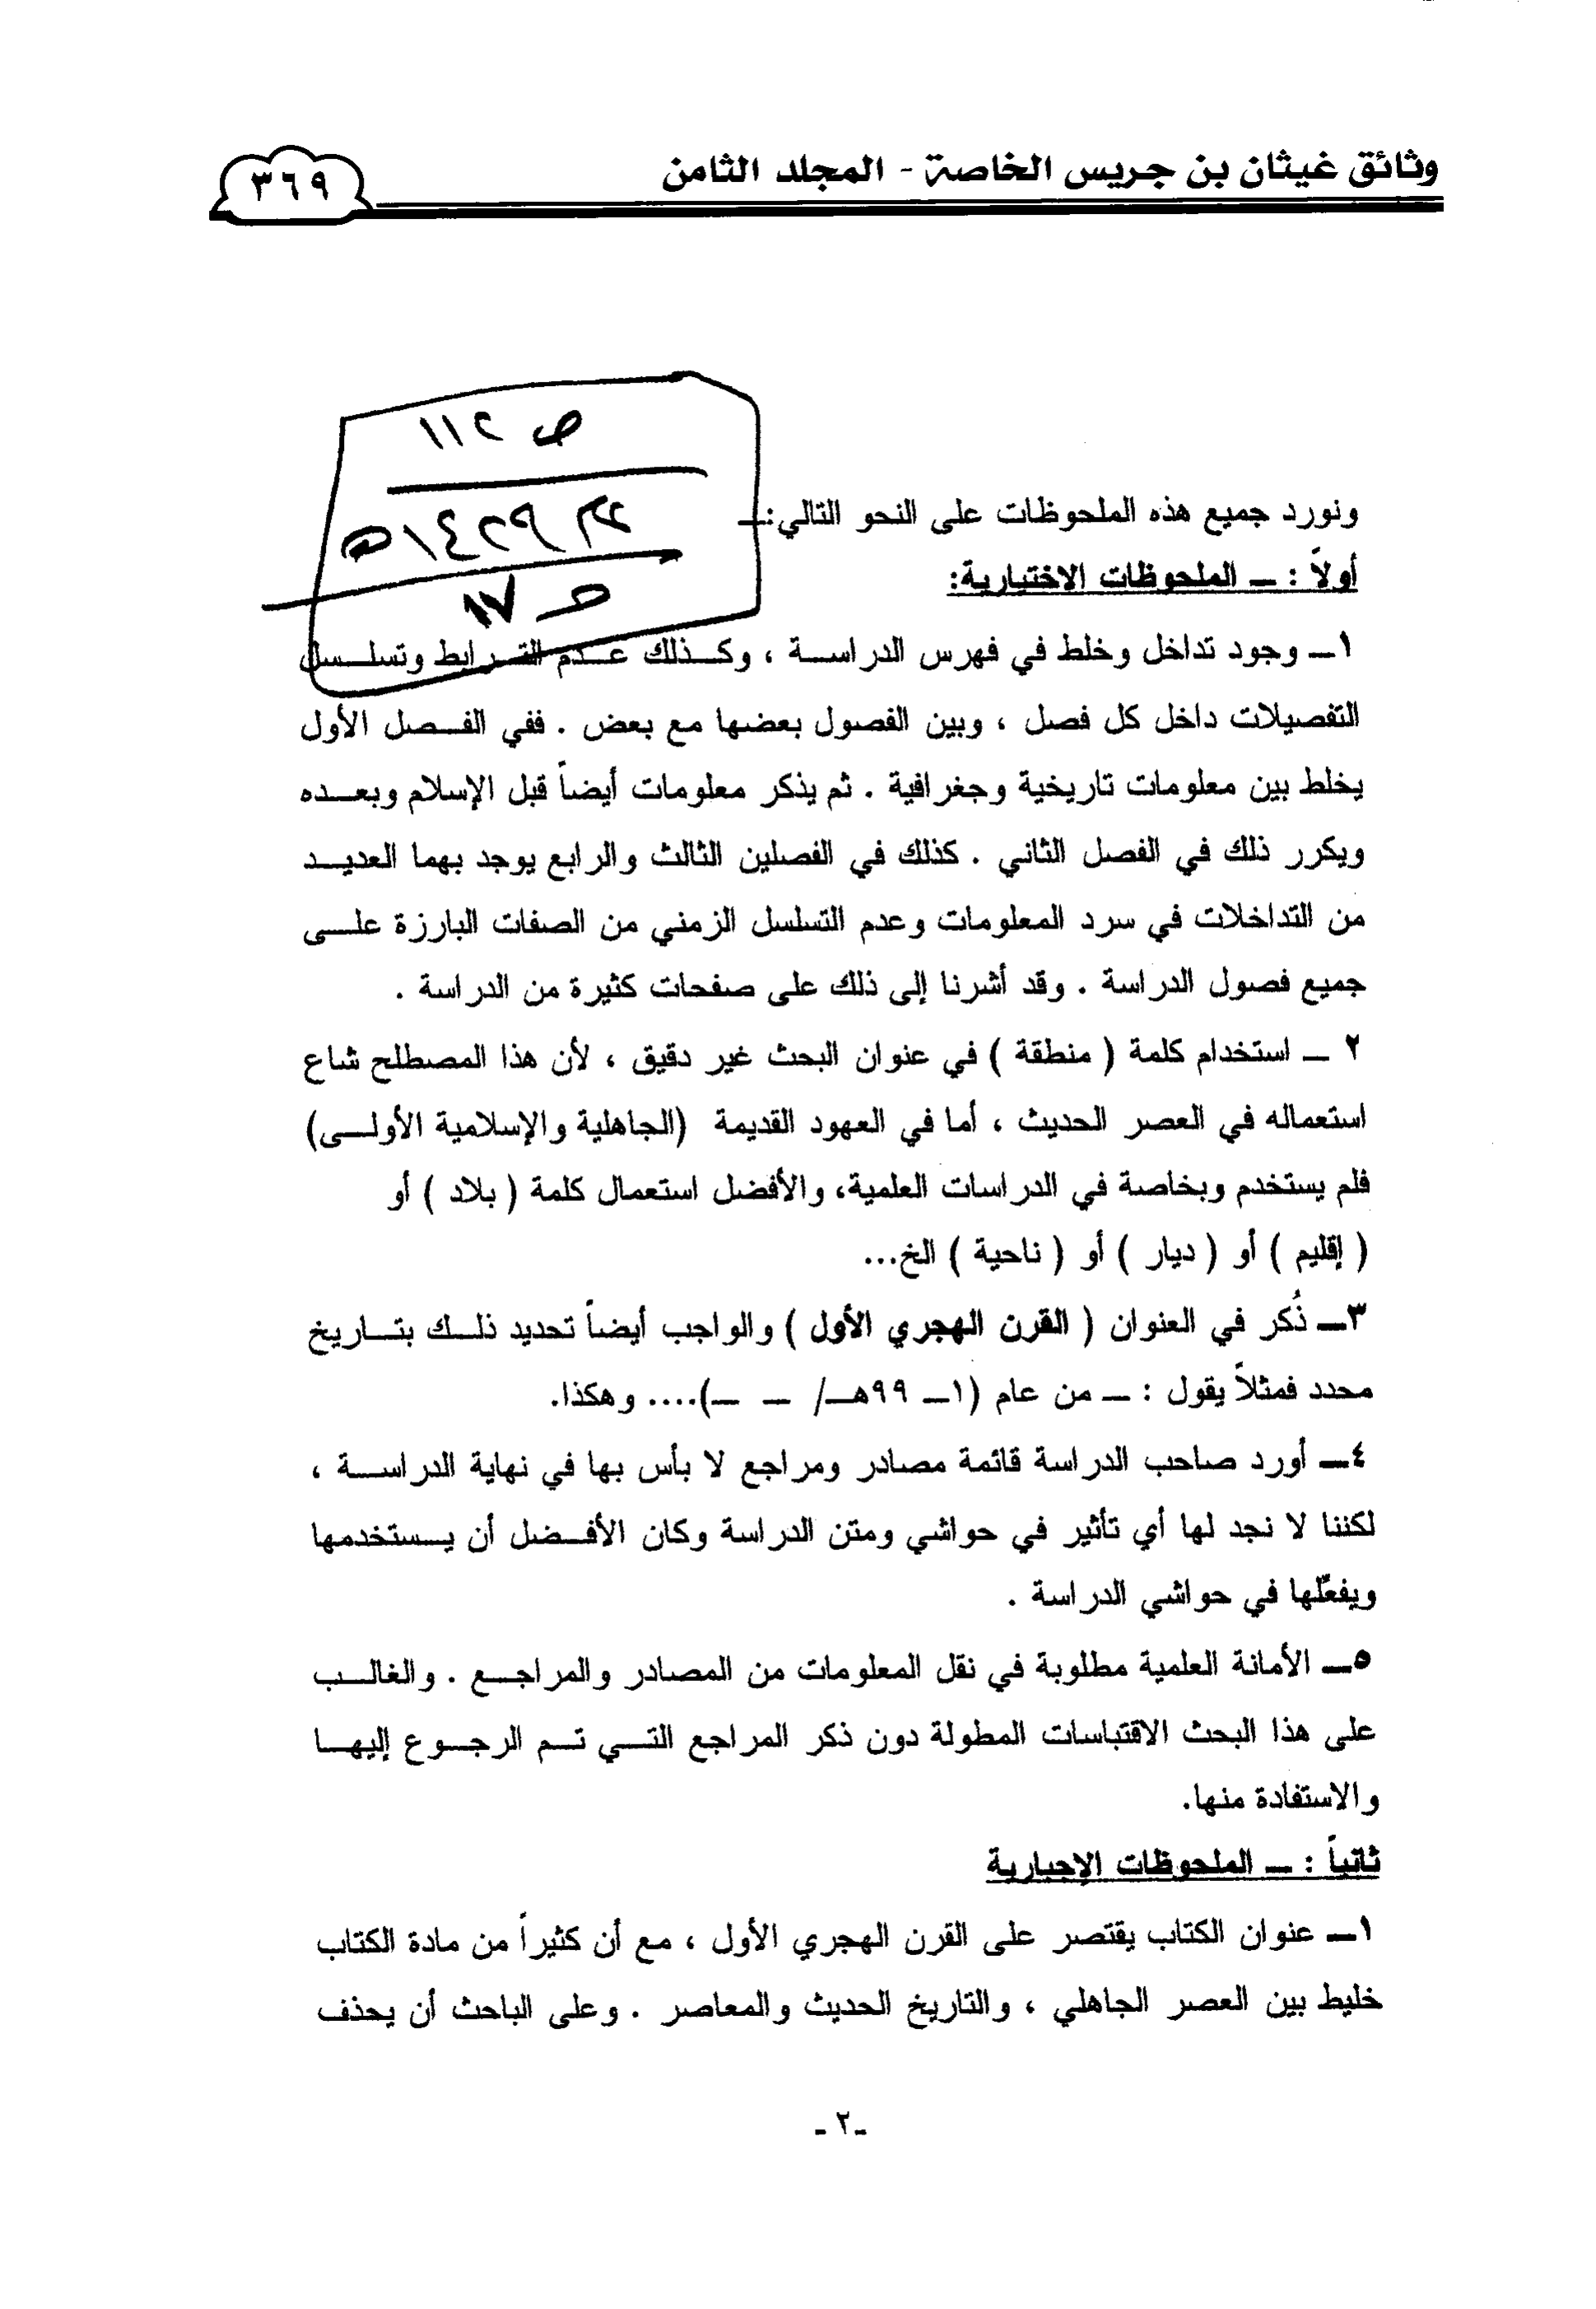 وثائق غيثان بن جريس الخاصة - المجلد الثامن
٣٦٩
ص ١١٢
١٤٢٩هـ
ص ١٧
ونورد جميع هذه الملحوظات على النحو التالي:ــ
أولاً : ــ الملحوظات الاختيارية:
١ــ وجود تداخل وخلط في فهرس الدراســة ، وكــذلك عــدم التــرابط وتسلــسل
التفصيلات داخل كل فصل ، وبين الفصول بعضها مع بعض . ففي الفــصل الأول
يخلط بين معلومات تاريخية وجغرافية . ثم يذكر معلومات أيضاً قبل الإسلام وبعــده
ويكرر ذلك في الفصل الثاني . كذلك في الفصلين الثالث والرابع يوجد بهما العديــد
من التداخلات في سرد المعلومات وعدم التسلسل الزمني من الصفات البارزة علــى
جميع فصول الدراسة . وقد أشرنا إلى ذلك على صفحات كثيرة من الدراسة .
٢ ــ استخدام كلمة ( منطقة ) في عنوان البحث غير دقيق ، لأن هذا المصطلح شاع
استعماله في العصر الحديث ، أما في العهود القديمة (الجاهلية والإسلامية الأولــى)
فلم يستخدم وبخاصة في الدراسات العلمية، والأفضل استعمال كلمة ( بلاد ) أو
( إقليم ) أو ( ديار ) أو ( ناحية ) الخ...
٣ــ ذُكر في العنوان ( القرن الهجري الأول ) والواجب أيضاً تحديد ذلــك بتــاريخ
محدد فمثلاً يقول : ــ من عام (١ــ ٩٩هــ/ ــ ــ).... وهكذا.
٤ــ أورد صاحب الدراسة قائمة مصادر ومراجع لا بأس بها في نهاية الدراســة ،
لكننا لا نجد لها أي تأثير في حواشي ومتن الدراسة وكان الأفــضل أن يــستخدمها
ويفعّلها في حواشي الدراسة .
٥ــ الأمانة العلمية مطلوبة في نقل المعلومات من المصادر والمراجــع . والغالــب
على هذا البحث الاقتباسات المطولة دون ذكر المراجع التــي تــم الرجــوع إليهــا
والاستفادة منها.
ثانياً : ــ الملحوظات الإجبارية
١ــ عنوان الكتاب يقتصر على القرن الهجري الأول ، مع أن كثيراً من مادة الكتاب
خليط بين العصر الجاهلي ، والتاريخ الحديث والمعاصر . وعلى الباحث أن يحذف
-٢-